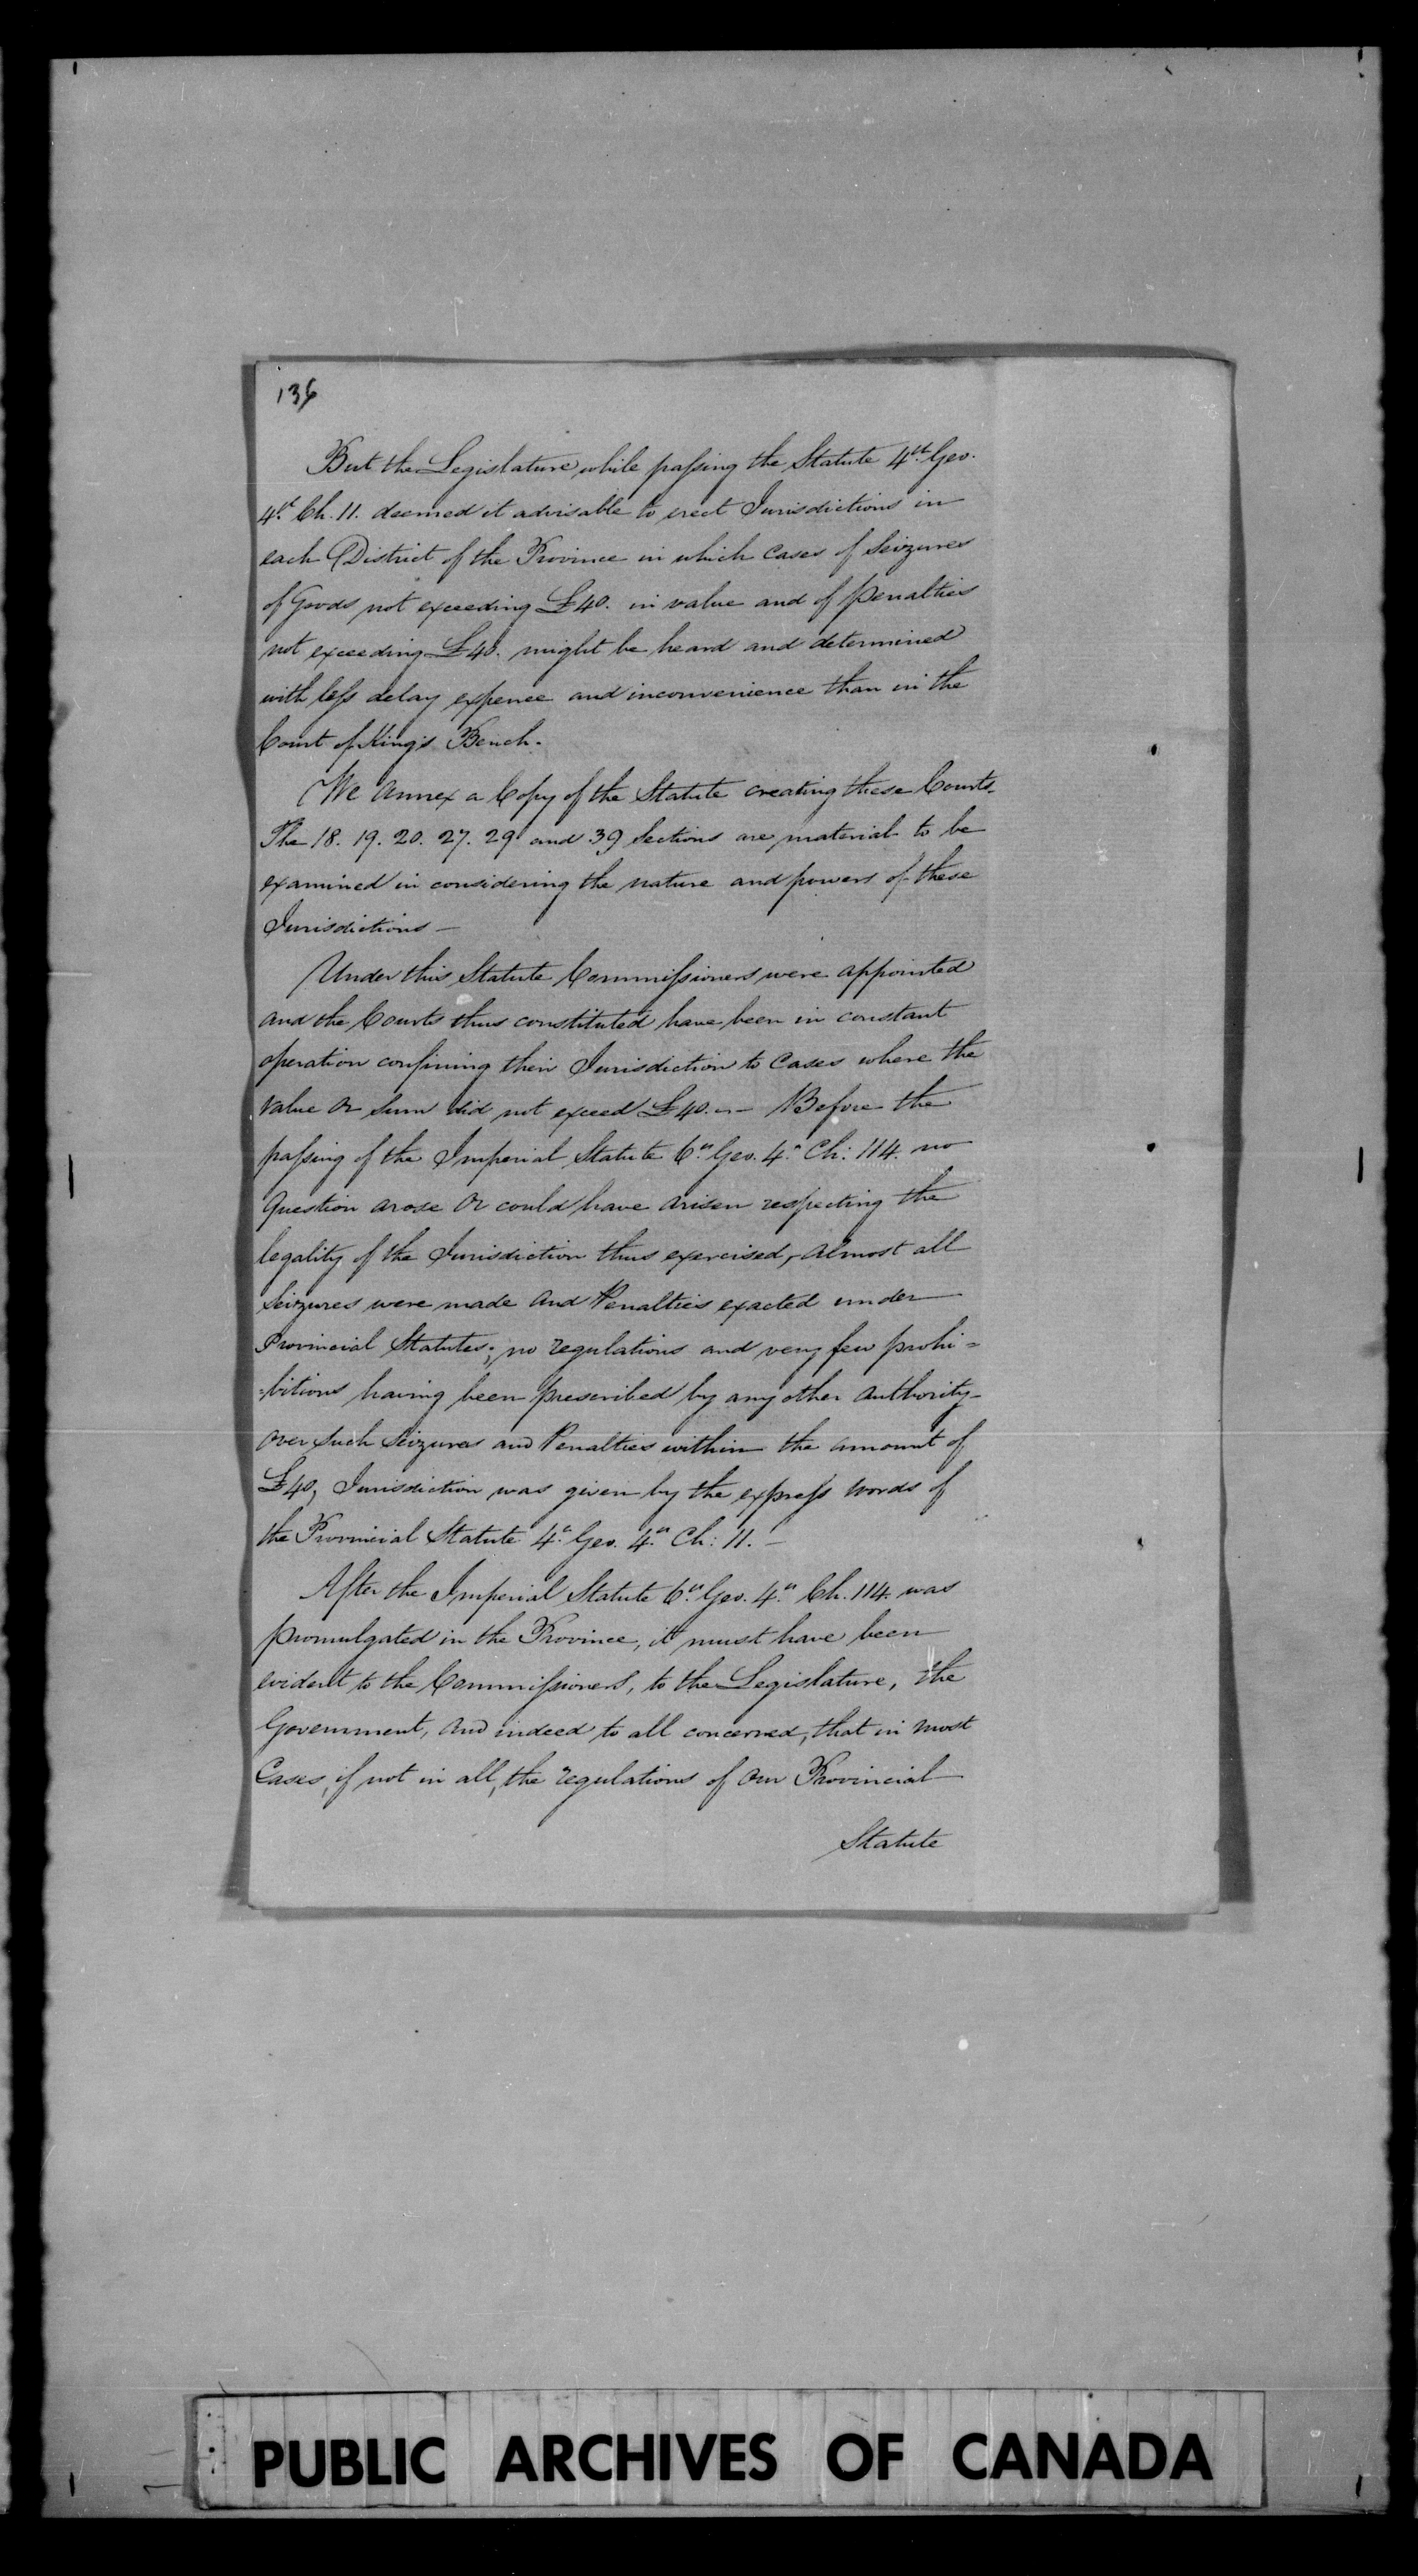 136
But the Legislature while passing the Statute 4th Geo.
4th Ch. 11. deemed it advisable to erect Jurisdictions in
each District of the Province in which Cases of Seizures
of Goods not exceeding £40. in value and of Penalties
not exceeding £40. might be heard and determined
with less delay expence and inconvenience than in the
Court of King's Bench.
We annex a Copy of the Statute creating these Courts.
The 18. 19. 20. 27. 29 and 39 Sections are material to be
examined in considering the nature and powers of these
Jurisdictions —
Under this Statute Commissioners were appointed
and the Courts thus constituted have been in constant
operation confining their Jurisdiction to Cases where the
value or sum did not exceed £40. — Before the
passing of the Imperial Statute 6th Geo. 4th Ch: 114. no
question arose or could have arisen respecting the
legality of the Jurisdiction thus exercised, almost all
Seizures were made and Penalties exacted under
Provincial Statutes; no regulations and very few prohi=
=bitions having been prescribed by any other authority—
over such Seizures and Penalties within the amount of
£40, Jurisdiction was given by the express words of
the Provincial Statute 4th Geo. 4th Ch: 11. —
After the Imperial Statute 6th Geo. 4th Ch. 114. was
promulgated in the Province, it must have been
evident to the Commissioners, to the Legislature, the
Government, and indeed to all concerned, that in most
Cases, if not in all, the regulations of our Provincial
Statute
PUBLIC ARCHIVES OF CANADA